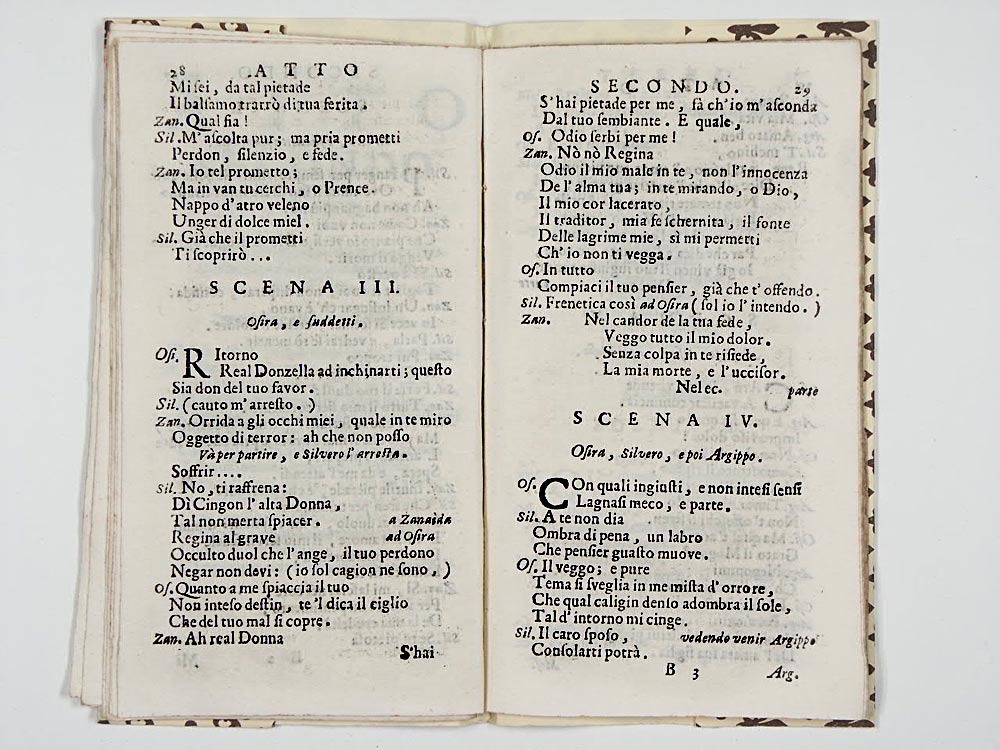 28 ATTO
Mi sei, da tal pietade
Il balsamo trarrò di tua ferita.
Zan. Qual fia!
Sil. M'ascolta pur; ma pria prometti
Perdon, silenzio, e fede.
Zan. Io tel prometto;
Ma in van tu cerchi, o Prence.
Nappo d'atro veleno
Unger di dolce miel.
Sil. Già che il prometti
Ti scoprirò...
SCENA III.
Osira, e suddetti.
Os. RItorno
Real Donzella ad inchinarti; questo
Sia don del tuo favor.
Sil. (cauto m'arresto.)
Zan. Orrida a gli occhi miei, quale in te miro
Oggetto di terror: ah che non posso
Và per partire, e Silvero l'arresta.
Soffrir....
Sil. No, ti raffrena:
Dì Cingon l'alta Donna,
Tal non merta spiacer. a Zanaida
Regina al grave ad Osira
Occulto duol che l'ange, il tuo perdono
Negar non devi: (io sol cagion ne sono,)
Os. Quanto a me spiaccia il tuo
Non inteso destin, te 'l dica il ciglio
Che del tuo mal si copre.
Zan. Ah real Donna
S'hai
SECONDO. 29
S'hai pietade per me, fà ch'io m'asconda
Dal tuo sembiante. E quale,
Os. Odio serbi per me!
Zan. Nò nò Regina
Odio il mio male in te, non l'innocenza
De l'alma tua; in te mirando, o Dio,
Il mio cor lacerato,
Il traditor, mia fe schernita, il fonte
Delle lagrime mie, sì mi permetti
Ch'io non ti vegga.
Os. In tutto
Compiaci il tuo pensier, già che t'offendo.
Sil. Frenetica così ad Osira (sol io l'intendo.)
Zan. Nel candor de la tua fede,
Veggo tutto il mio dolor.
Senza colpa in te risiede,
La mia morte, e l'uccisor.
Nel ec. parte
SCENA IV.
Osira, Silvero, e poi Argippo.
Os. COn quali ingiusti, e non intesi sensi
Lagnasi meco, e parte.
Sil. A te non dia
Ombra di pena, un labro
Che pensier guasto muove.
Os. Il veggo; e pure
Tema si sveglia in me mista d'orrore,
Che qual caligin denso adombra il sole,
Tal d'intorno mi cinge.
Sil. Il caro sposo, vedendo venir Argippo
Consolarti potrà.
B 3 Arg.